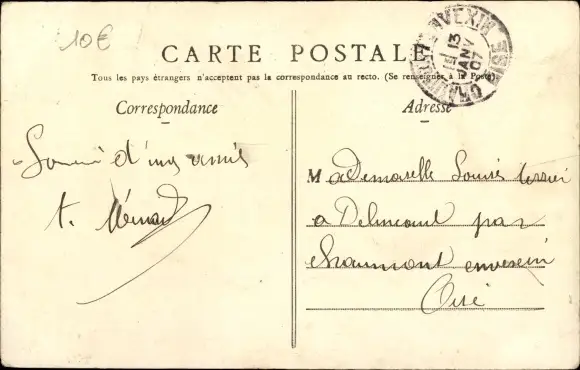 10€
CARTE POSTALE
Tous les pays étrangers n'acceptent pas la correspondance au recto. (Se renseigner à la Poste)
Correspondance
Adresse
VEXIN
13
JANV
07
OISE
d'une amie
Mademoiselle
a Delincourt par
chaumont envexin
Oise